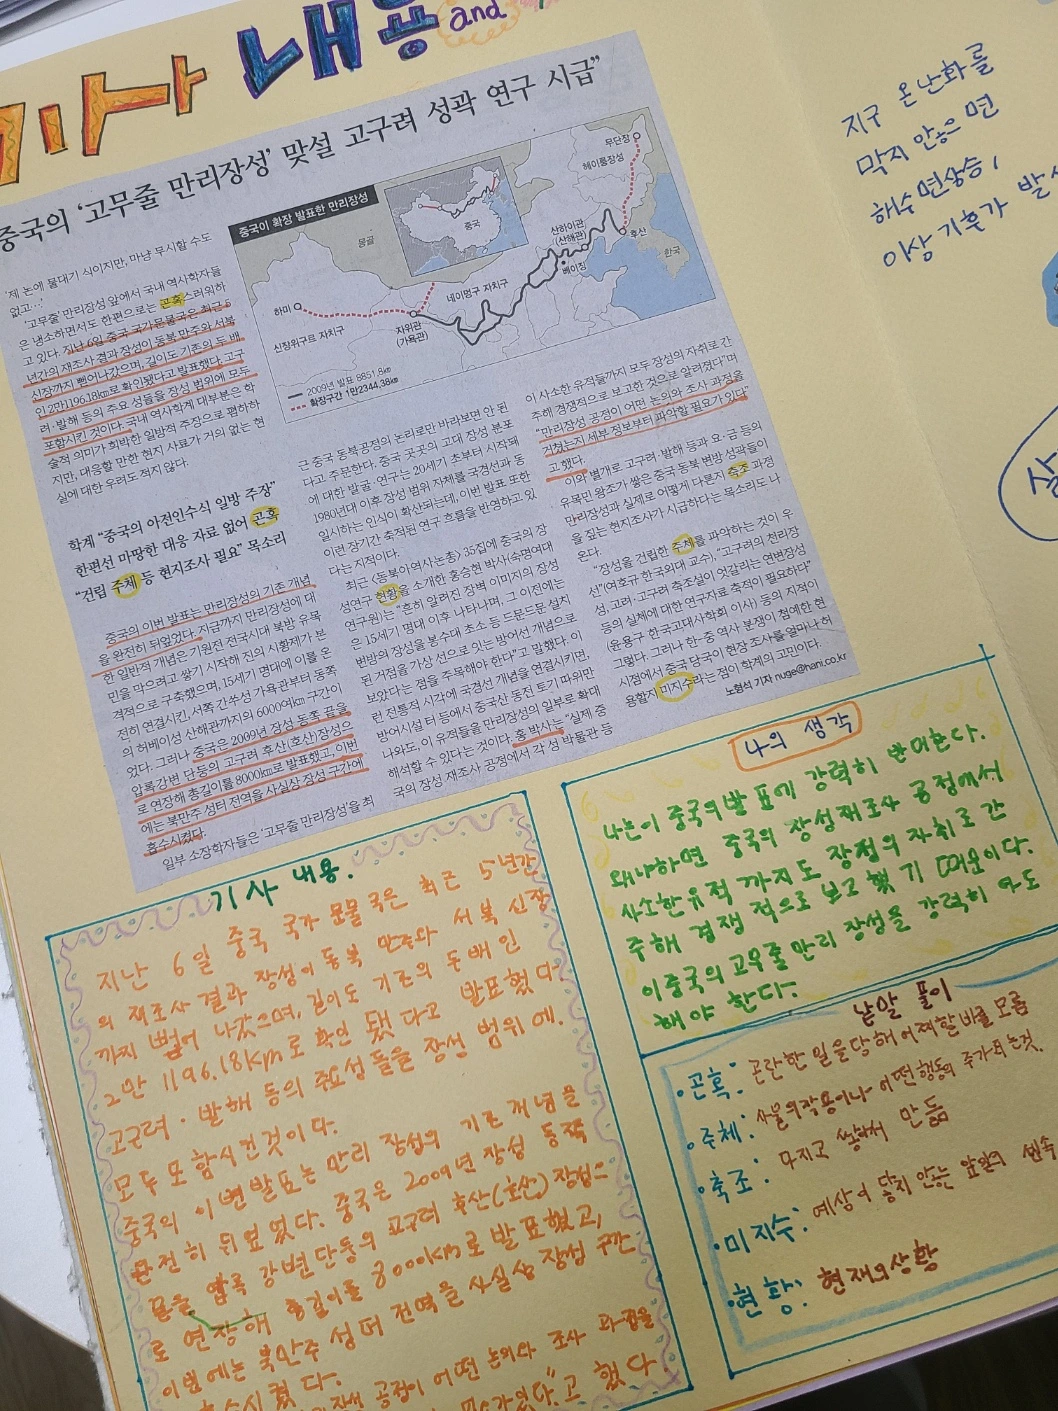 기사 내용 and
중국의 '고무줄 만리장성' 맞설 고구려 성곽 연구 시급"
'제 논에 물대기 식이지만, 마냥 무시할 수도
없고…'
'고무줄' 만리장성 앞에서 국내 역사학자들
은 냉소하면서도 한편으로는 곤혹스러워하
고 있다. 지난 6일 중국 국가문물국은 최근 5
년간의 재조사 결과 장성이 동북 만주와 서북
신장까지 뻗어나갔으며, 길이도 기존의 두 배
인 2만1196.18㎞로 확인됐다고 발표했다. 고구
려·발해 등의 주요 성들을 장성 범위에 모두
포함시킨 것이다. 국내 역사학계 대부분은 학
술적 의미가 희박한 일방적 주장으로 폄하하
지만, 대응할 만한 현지 사료가 거의 없는 현
실에 대한 우려도 적지 않다.
학계 "중국의 아전인수식 일방 주장"
한편선 마땅한 대응 자료 없어 곤혹
"건립 주체 등 현지조사 필요" 목소리
중국의 이번 발표는 만리장성의 기존 개념
을 완전히 뒤엎었다. 지금까지 만리장성에 대
한 일반적 개념은 기원전 전국시대 북방 유목
민을 막으려고 쌓기 시작해 진의 시황제가 본
격적으로 구축했으며, 15세기 명대에 이를 온
전히 연결시킨, 서쪽 간쑤성 가욕관부터 동쪽
의 허베이성 산해관까지의 6000여㎞ 구간이
었다. 그러나 중국은 2009년 장성 동쪽 끝을
압록강변 단둥의 고구려 후산(호산)장성으
로 연장해 총길이를 8000㎞로 발표했고, 이번
에는 북만주 성터 전역을 사실상 장성 구간에
흡수시켰다.
일부 소장학자들은 '고무줄 만리장성'을 최
중국이 확장 발표한 만리장성
몽골
중국
무단장
헤이룽장성
산하이관
(산해관)
후산
한국
베이징
네이멍구 자치구
하미
자위관
(가욕관)
신장위구르 자치구
2009년 발표 8851.8㎞
확장구간 1만2344.38㎞
근 중국 동북공정의 논리로만 바라보면 안 된
다고 주문한다. 중국 곳곳의 고대 장성 분포
에 대한 발굴·연구는 20세기 초부터 시작돼
1980년대 이후 장성 범위 자체를 국경선과 동
일시하는 인식이 확산되는데, 이번 발표 또한
이런 장기간 축적된 연구 흐름을 반영하고 있
다는 지적이다.
최근 <동북아역사논총> 35집에 중국의 장
성연구 현황을 소개한 홍승현 박사(숙명여대
연구원)는 "흔히 알려진 장벽 이미지의 장성
은 15세기 명대 이후 나타나며, 그 이전에는
변방의 장성을 봉수대 초소 등 드문드문 설치
된 거점을 가상 선으로 잇는 방어선 개념으로
보았다는 점을 주목해야 한다"고 말했다. 이
런 전통적 시각에 국경선 개념을 연결시키면,
방어시설 터 등에서 중국산 동전 토기 파위만
나와도, 이 유적들을 만리장성의 일부로 확대
해석할 수 있다는 것이다. 홍 박사는 "실제 중
국의 장성 재조사 공정에서 각 성 박물관 등
이 사소한 유적들까지 모두 장성의 자취로 간
주해 경쟁적으로 보고한 것으로 알려졌다"며
"만리장성 공정이 어떤 논의와 조사 과정을
거쳤는지 세부 정보부터 파악할 필요가 있다"
고 했다.
이와 별개로 고구려·발해 등과 요·금 등의
유목민 왕조가 쌓은 중국 동북 변방 성곽들이
만리장성과 실제로 어떻게 다른지 축조 과정
을 짚는 현지조사가 시급하다는 목소리도 나
온다.
"장성을 건립한 주체를 파악하는 것이 우
선"(여호규 한국외대 교수), "고구려의 천리장
성, 고려·고구려 축조설이 엇갈리는 연변장성
등의 실체에 대한 연구자료 축적이 필요하다"
(윤용구 한국고대사학회 이사) 등의 지적이
그렇다. 그러나 한·중 역사 분쟁이 첨예한 현
시점에서 중국 당국이 현장 조사를 얼마나 허
용할지 미지수라는 점이 학계의 고민이다.
노형석 기자 nuge@hani.co.kr
지구 온난화를
막지 않으면
해수면상승,
이상 기후가 발
기사 내용.
지난 6일 중국 국가 문물국은 최근 5년간
의 재조사 결과 장성이 동북 만주와 서북 신장
까지 뻗어 나갔으며, 길이도 기존의 두배 인
2만 1196.18km로 확인 됐다고 발표했다
고구려·발해 등의 주요성들을 장성 범위에.
모두 포함시킨것이다.
중국의 이번발표는 만리 장성의 기존 개념을
완전히 뒤엎었다. 중국은 2009년 장성 동쪽
끝을 압록 강변단둥의 고구려 후산(호산)장성으
로 연장해 총길이를 8000km로 발표했고,
이번 에는 북만주 성터 전역을 사실상 장성 구간
수시켰다.
장성 공정이 어떤 논의와 조사 과정을
요가있다"고 했다
나의 생각
나는이 중국의발표에 강력히 반대한다.
왜냐하면 중국의 장성재조사 공정에서
사소한유적 까지도 장성의 자취로 간
주해 경쟁적으로 보고했기 때문이다.
이중국의 고무줄만리 장성을 강력히
해야 한다.
낱말 풀이
·곤혹: 곤란한 일을당해 어찌할바를 모름
·주체: 사물의작용이나 어떤행동의 주가되는것.
·축조: 다지고 쌓아서 만듦
·미지수: 예상이 닿지 않는 앞일의
·현황: 현재의상황